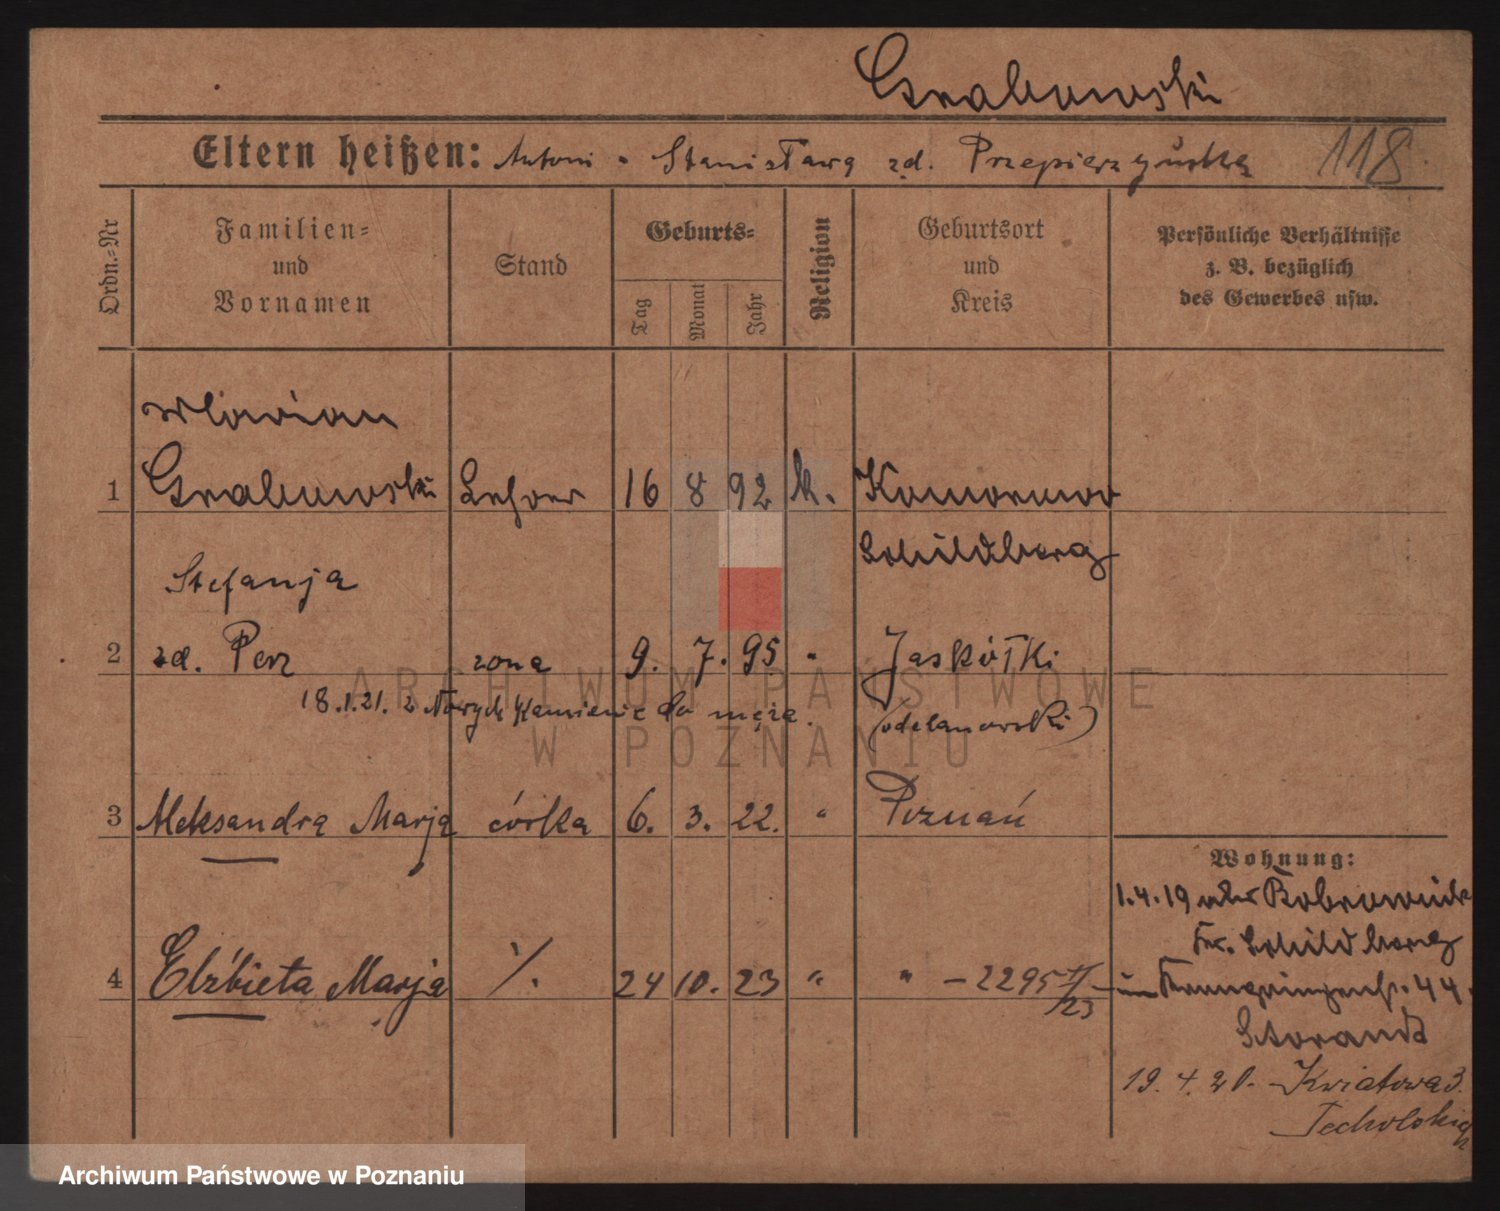 Grabowski
Eltern heißen: Antoni - Stanisława zd. Przepierzyńska 118
Ordn.-Nr
Familien-
und
Vornamen
Stand
Geburts-
Tag
Monat
Jahr
Religion
Geburtsort
und
Kreis
Persönliche Verhältnisse
z. B. bezüglich
des Gewerbes usw.
Marian
1 Grabowski Lehrer 16 8 92 k. Komorowo
Schildberg
Stefanja
2 zd. Perz żona 9. 7. 95 " Jaskółki
18.1.21. z Kamienic do męża. (odolanowski)
3 Aleksandra Marja córka 6. 3. 22. " Poznań
4 Elżbieta Marja ./. 24 10. 23 " " - 2295
Wohnung:
1.4.19
Schildberg
44.
19.4.20. Kwiatowa 3.
ARCHIWUM PAŃSTWOWE
W POZNANIU
Archiwum Państwowe w Poznaniu